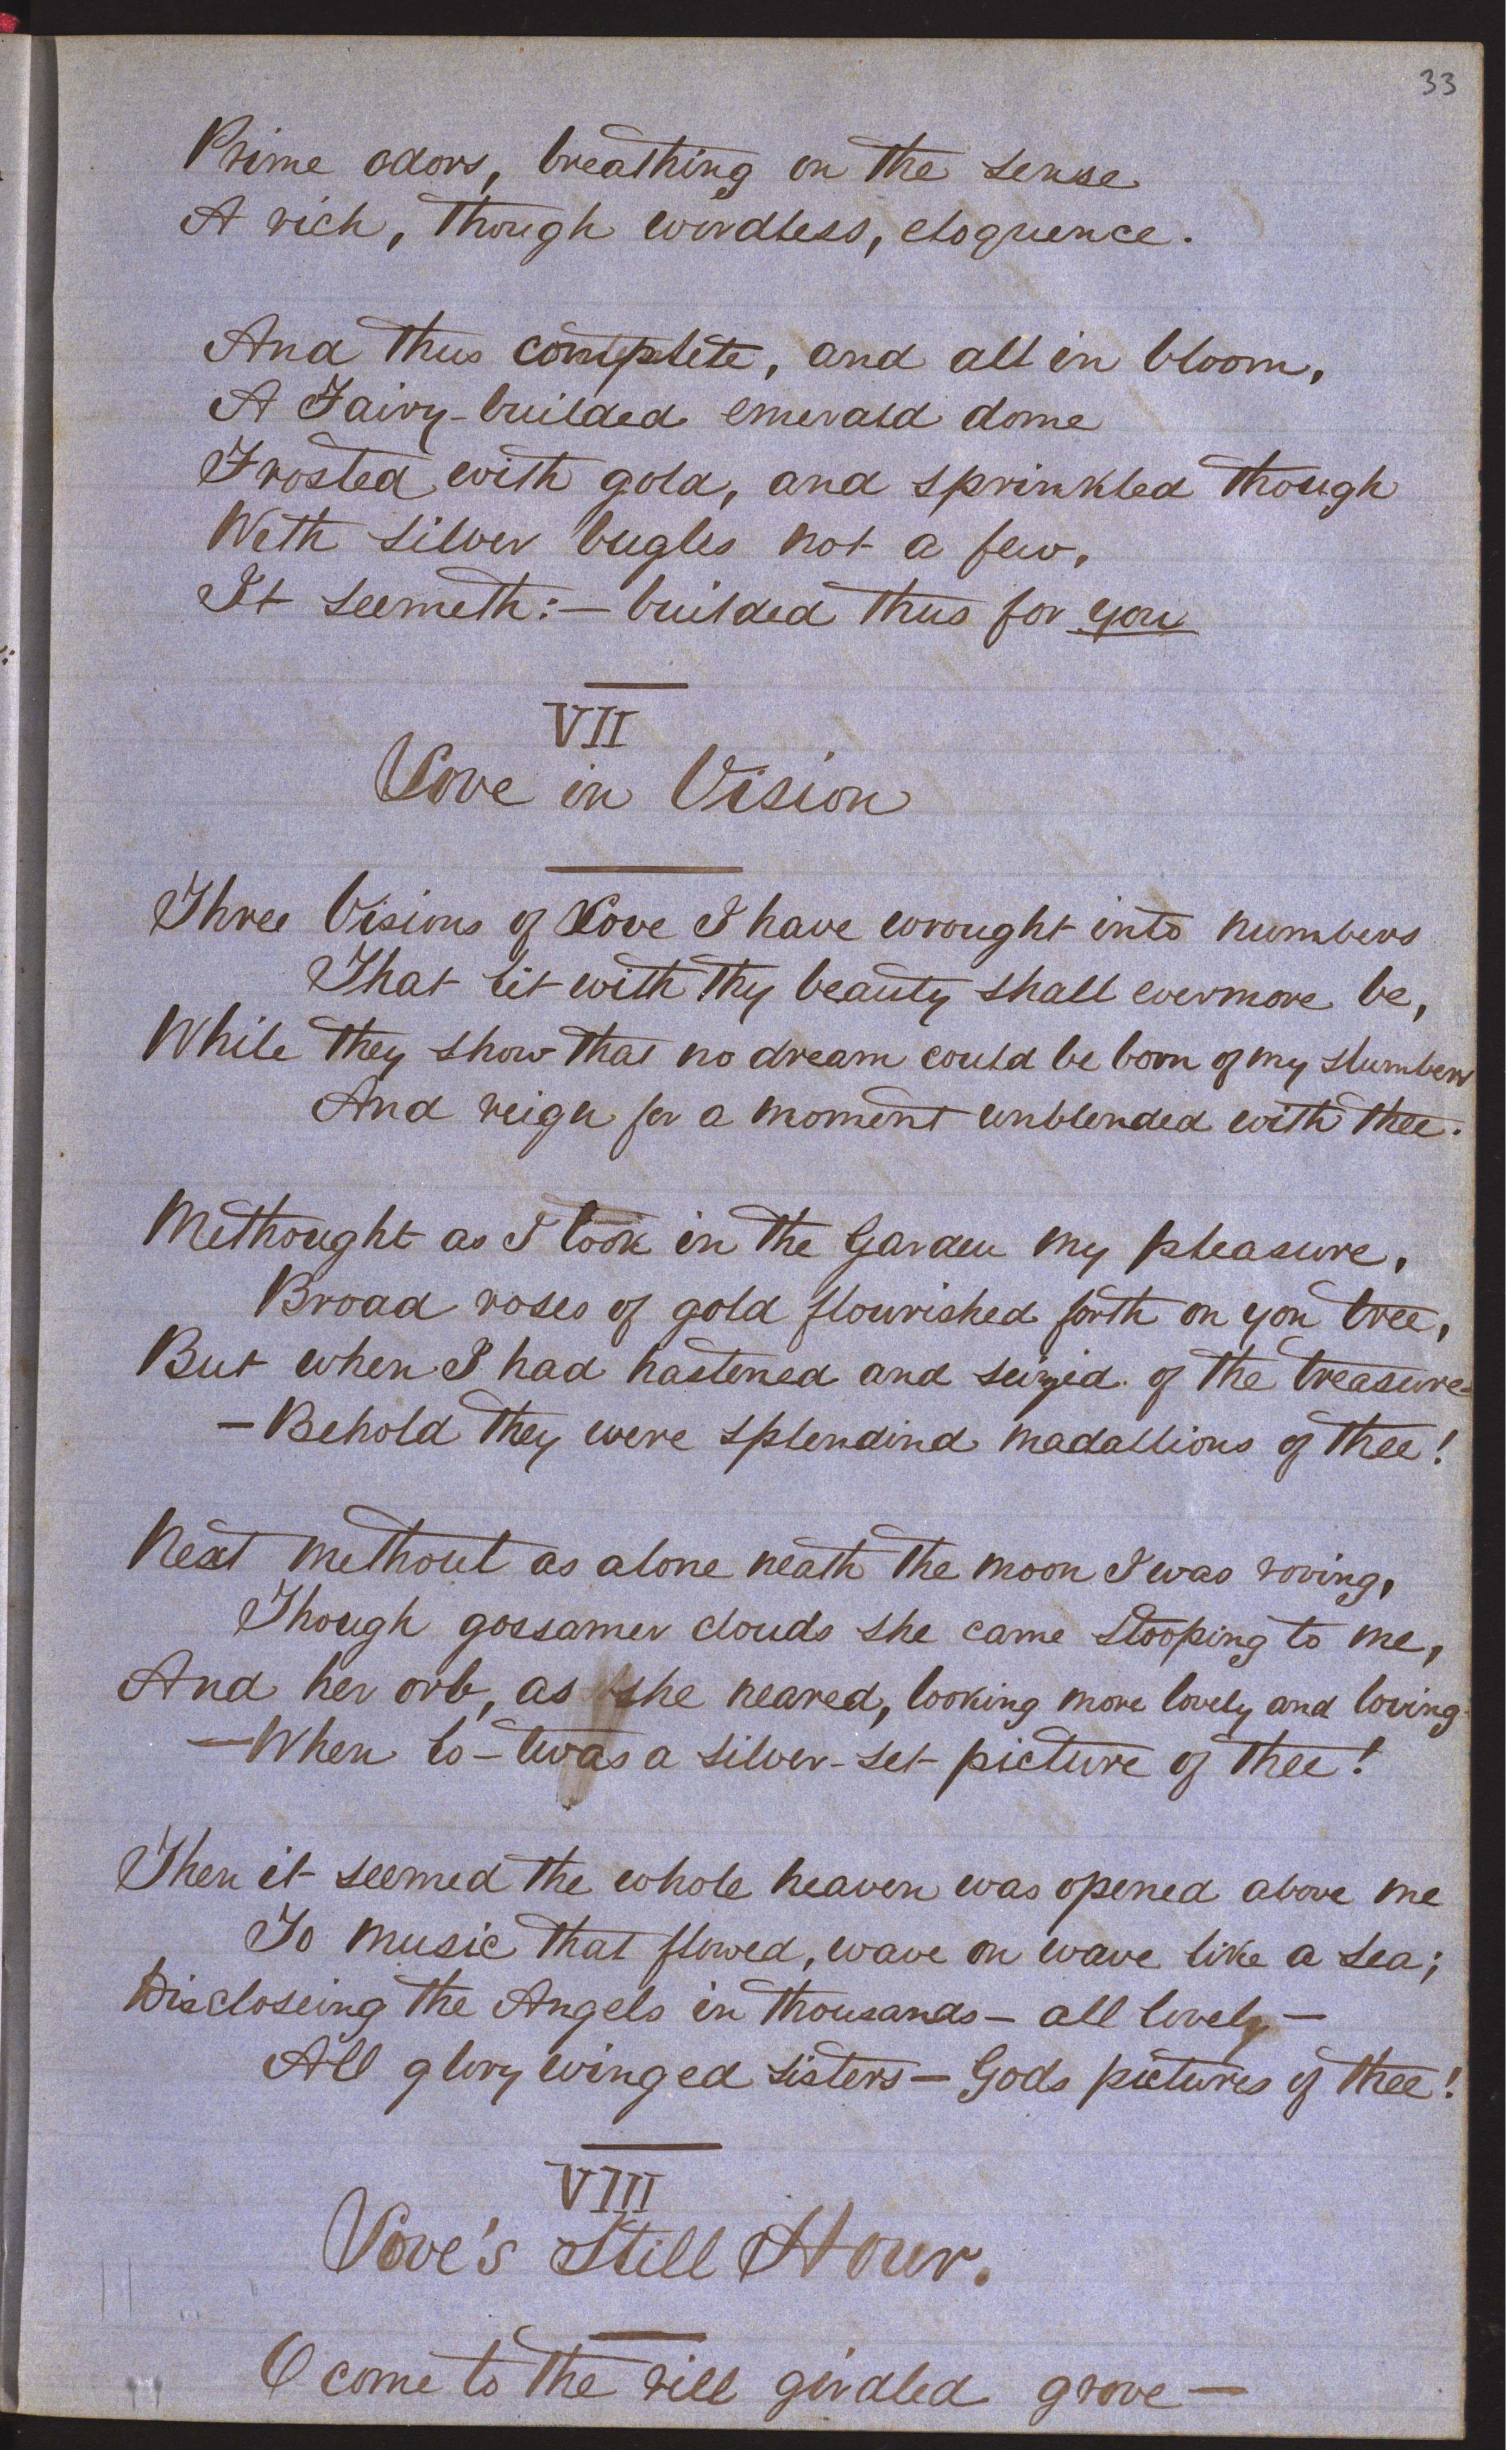 33
Prime odors, breathing on the sense
A rich, though wordless, eloquence.
And thus complete, and all in bloom,
A Fairy-builded emerald dome
Frosted with gold, and sprinkled though
With silver bugles not a few,
It seemeth:— builded thus for you
VII
Love in Vision
Three Visions of Love I have wrought into numbers
That lit with thy beauty shall evermore be,
While they show that no dream could be born of my slumbers
And reign for a moment unblended with thee.
Methought as I took in the Garden my pleasure,
Broad roses of gold flourished forth on yon tree,
But when I had hastened and seizied of the treasure
—Behold they were splendind madallions of thee!
Next methout as alone neath the moon I was roving,
Though gossamer clouds she came stooping to me,
And her orb, as she neared, looking more lovely and loving
—When lo—twas a silver-set picture of thee!
Then it seemed the whole heaven was opened above me
To music that flowed, wave on wave like a sea;
Discloseing the Angels in thousands — all lovely —
All glory winged sisters — Gods pictures of thee!
VIII
Love's Still Hour.
O come to the rill girdled grove —